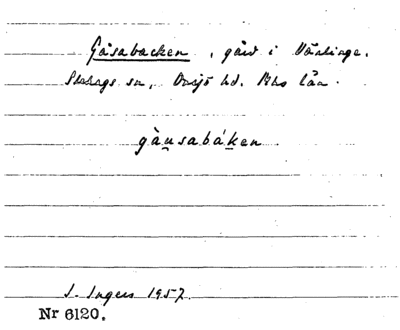 Gåsabacken, gård i
Stehags sn, Onsjö hd. Mhs län.
gàu̯sabák̯en
I. Ingers 1957.
Nr 6120.